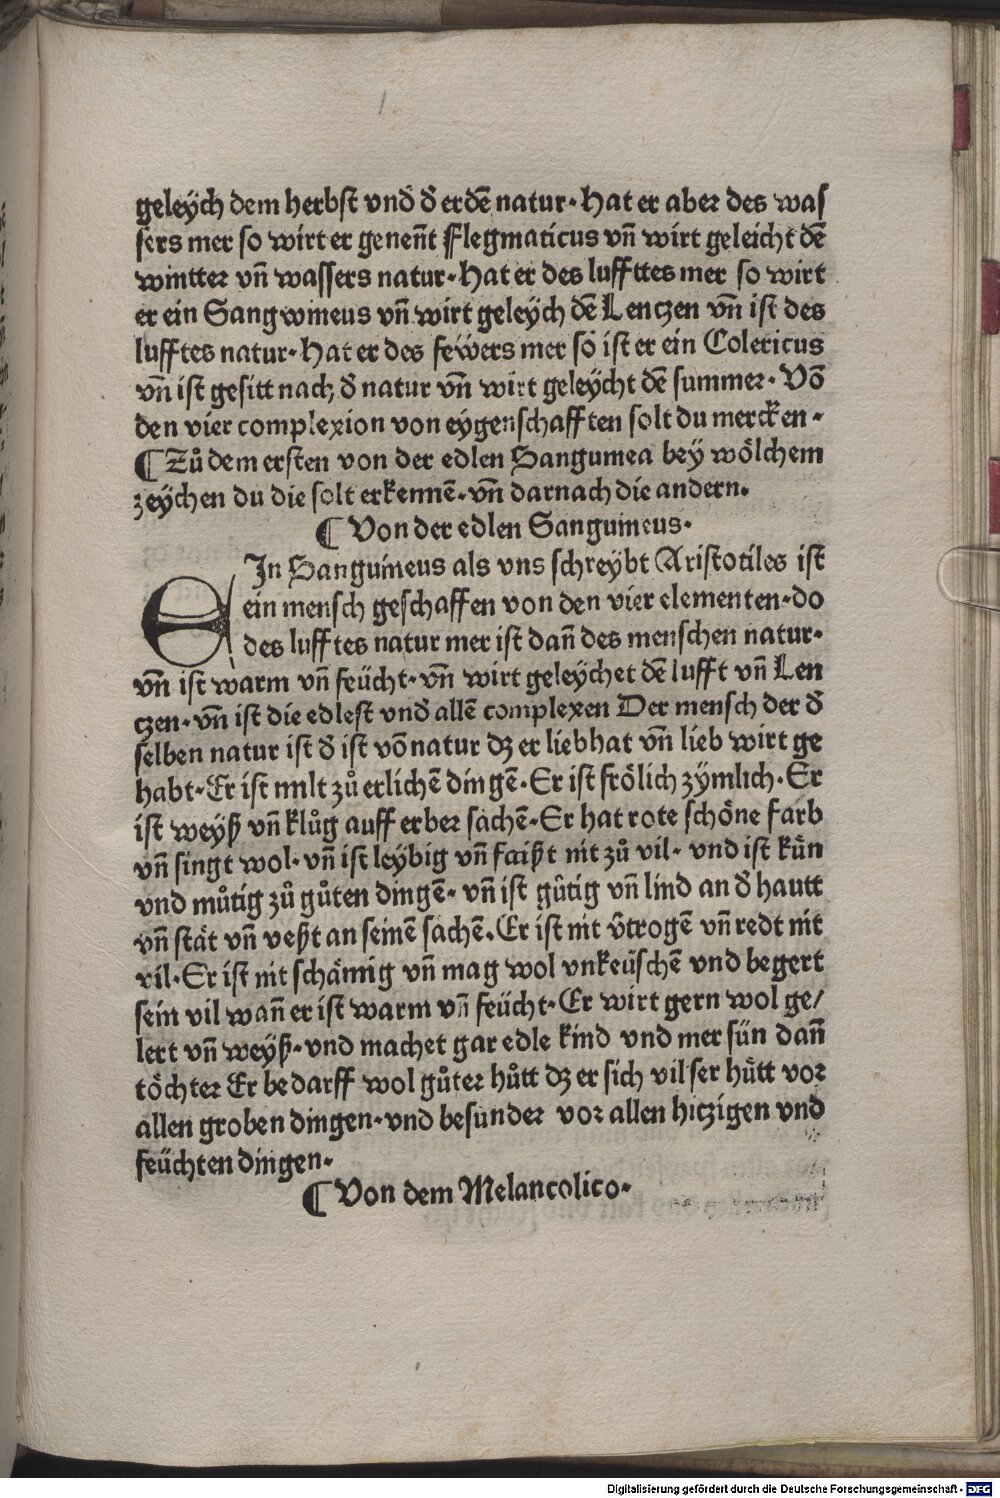 geleÿch dem herbst vnd̄ d̄ erdē natur· Hat er aber des was
sers mer so wirt er genen̄t Flegmaticus vn̄ wirt geleicht dē
wintter vn̄ wassers natur· Hat er des luffttes mer so wirt
er ein Sangwineus vn̄ wirt geleÿch dē Lenczen vn̄ ist des
lufftes natur· Hat er des feẅers mer so ist er ein Colericus
vn̄ ist gesitt nach d̄ natur vn̄ wirt geleÿcht dē summer· Vō
den vier complexion von eÿgenschafften solt du mercken·
¶ Zů dem ersten von der edlen Sanguinea beÿ wölchem
zeÿchen du die solt erkennē· vn̄ darnach die andern.
¶ Von der edlen Sanguineus·
EIn Sanguineus als vns schreÿbt Aristotiles ist
ein mensch geschaffen von den vier elementen· do
des lufftes natur mer ist dan̄ des menschen natur·
vn̄ ist warm vn̄ feücht· vn̄ wirt geleÿchet dē lufft vn̄ Len
czen· vn̄ ist die edlest vnd̄ allē complexen Der mensch der d̄
selben natur ist d̄ ist vō natur dz er liebhat vn̄ lieb wirt ge
habt· Er ist milt zů erlichē dingē· Er ist frölich zÿmlich· Er
ist weÿß vn̄ klůg auff erber sachē· Er hat rote schöne farb
vn̄ singt wol· vn̄ ist leÿbig vn̄ faißt nit zů vil· vnd ist kün
vnd můtig zů gůten dingē· vn̄ ist gütig vn̄ lind an d̄ hautt
vn̄ stät vn̄ veßt an seinē sachē. Er ist nit v̄trogē vn̄ redt nit
vil· Er ist nit schämig vn̄ mag wol vnkeüschē vnd begert
sein vil wan̄ er ist warm vn̄ feücht· Er wirt gern wol ge/
lert vn̄ weÿß· vnd machet gar edle kind vnd mer sün dan̄
töchter Er bedarff wol gůter hůtt dz er sich vil ser hütt vor
allen groben dingen· vnd besunder vor allen hiczigen vnd
feüchten dingen·
¶ Von dem Melancolico·
Digitalisierung gefördert durch die Deutsche Forschungsgemeinschaft - DFG